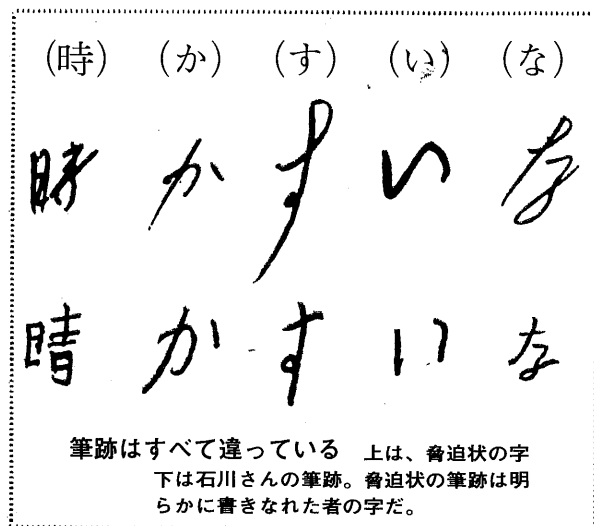 （時）（か）（す）（い）（な）
時かすいな
晴かすいな
筆跡はすべて違っている　上は、脅迫状の字
下は石川さんの筆跡。脅迫状の筆跡は明
らかに書きなれた者の字だ。